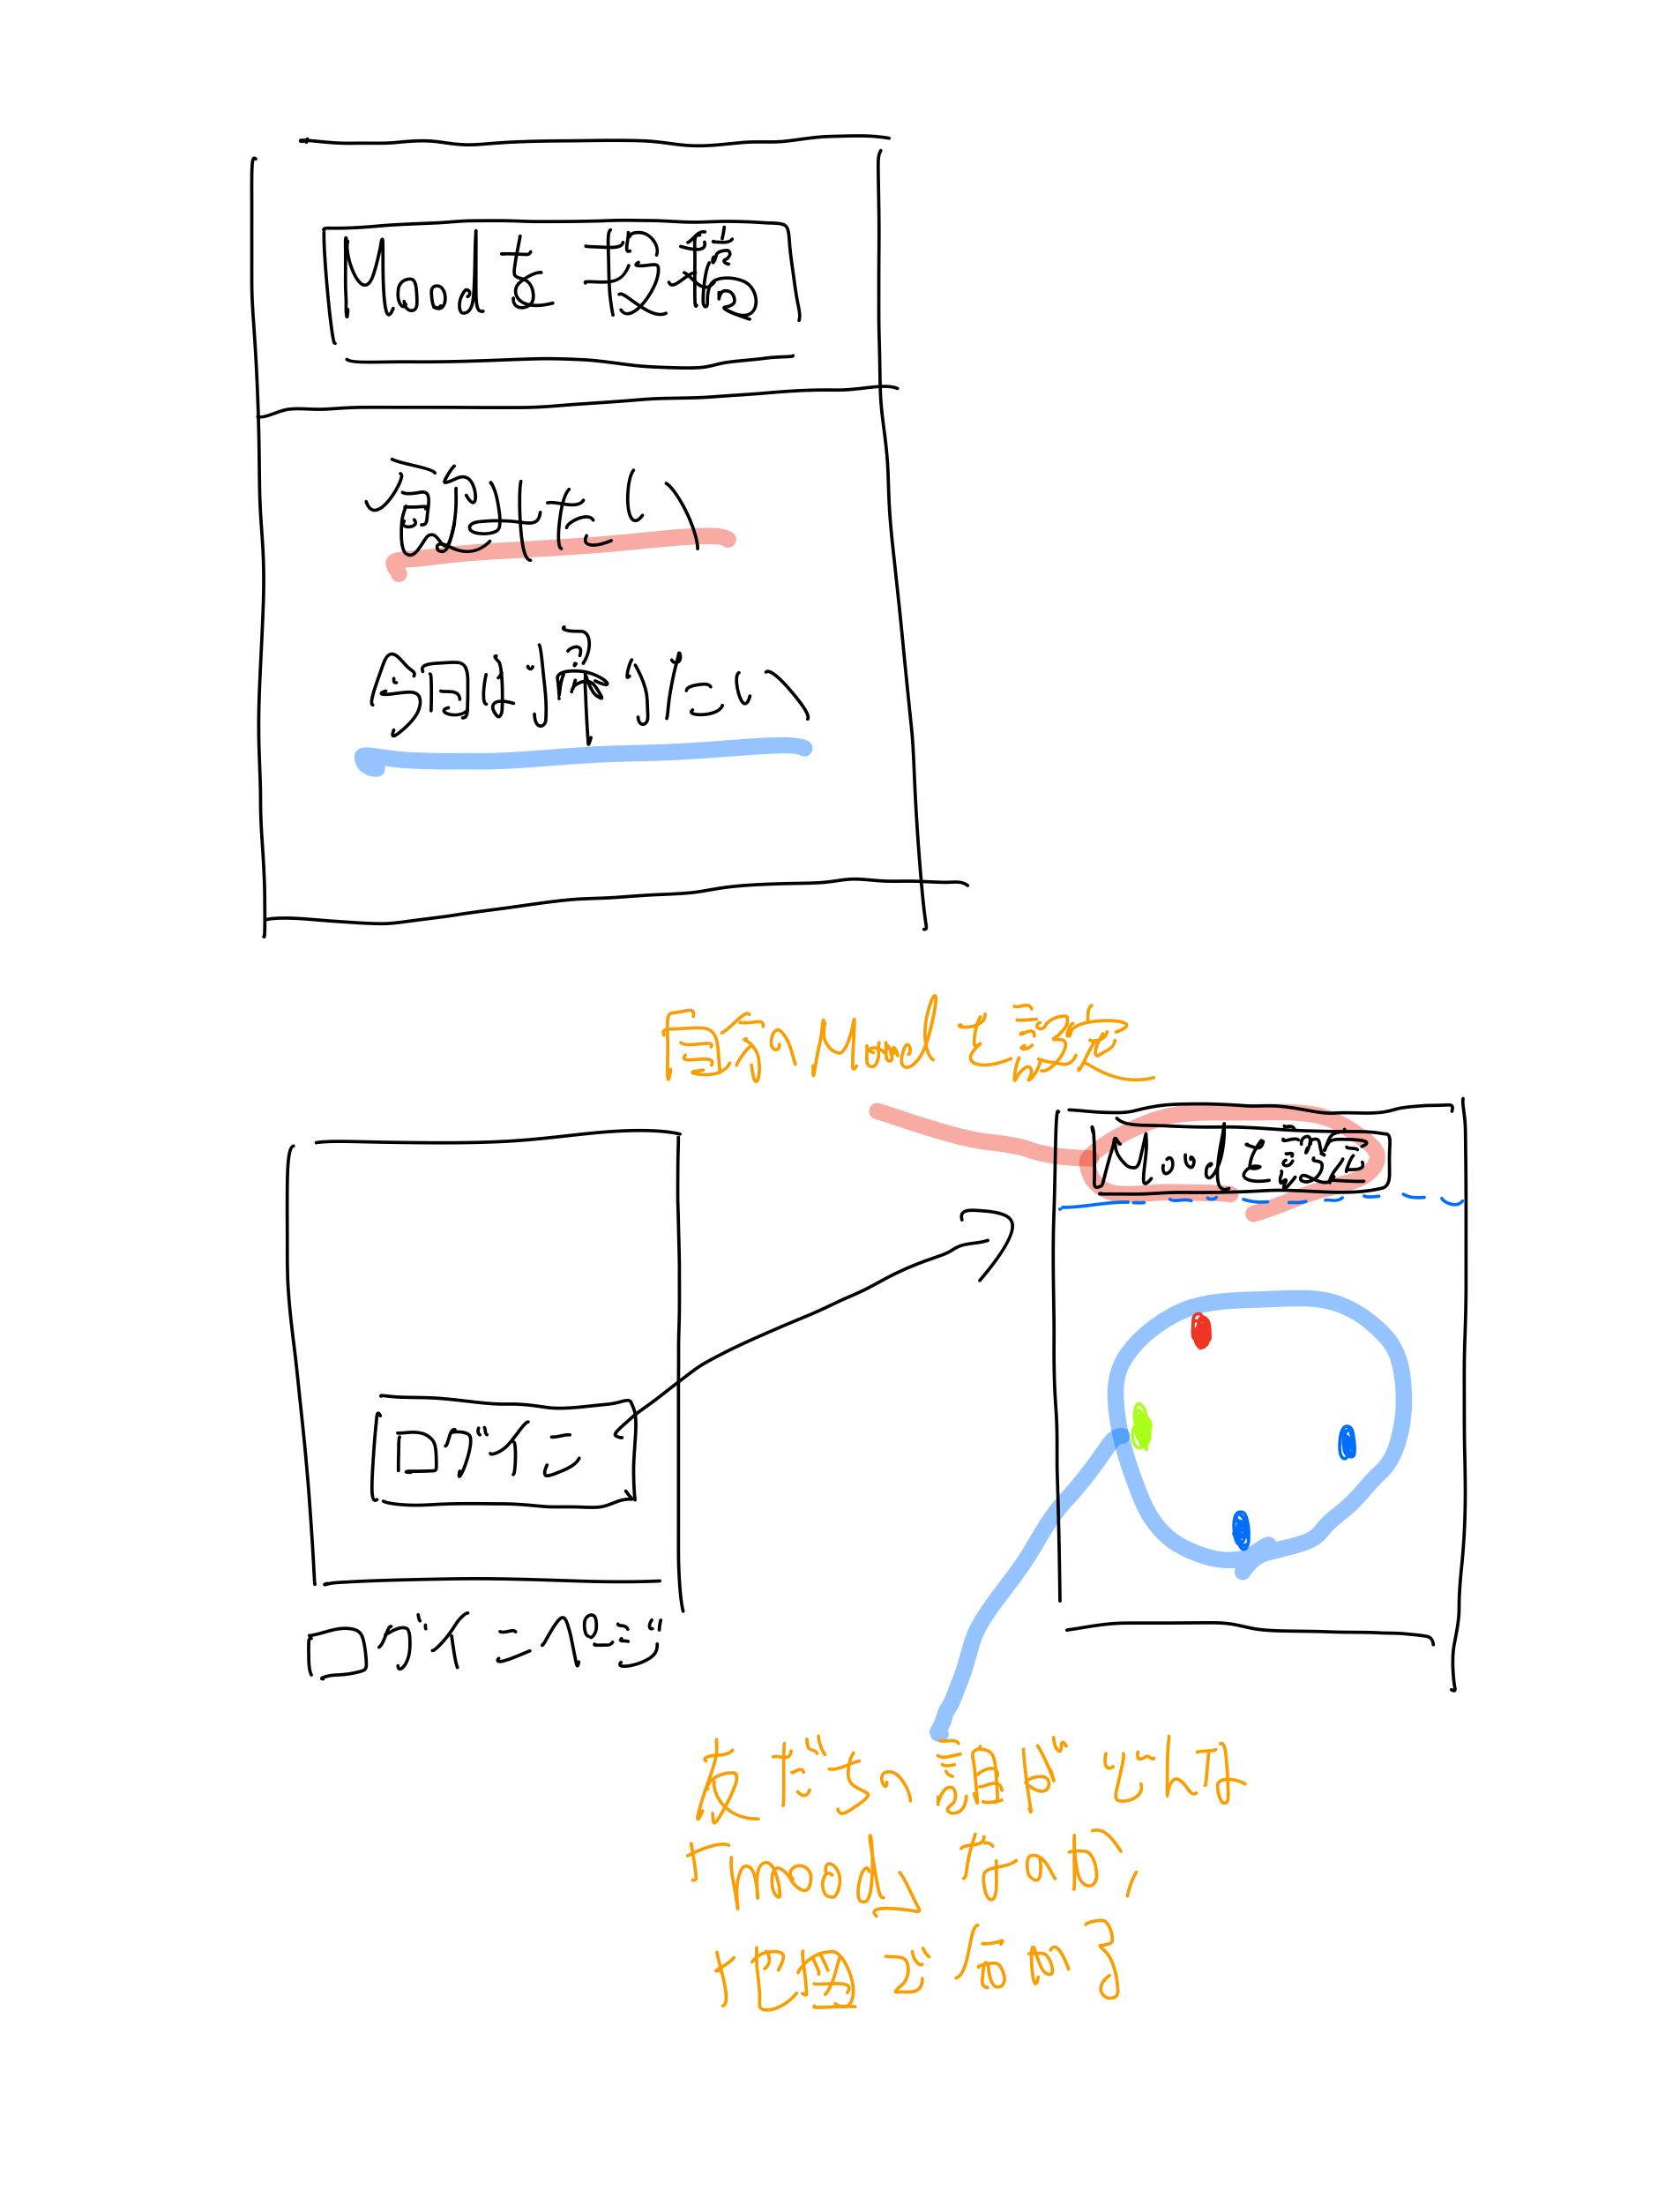 Moodを投稿
飲みたい
今日は帰りたい
自分のMoodを設定
Moodを設定
ログイン
ログインページ
友だちの誰がどんな
「mood」なのか、
把握で